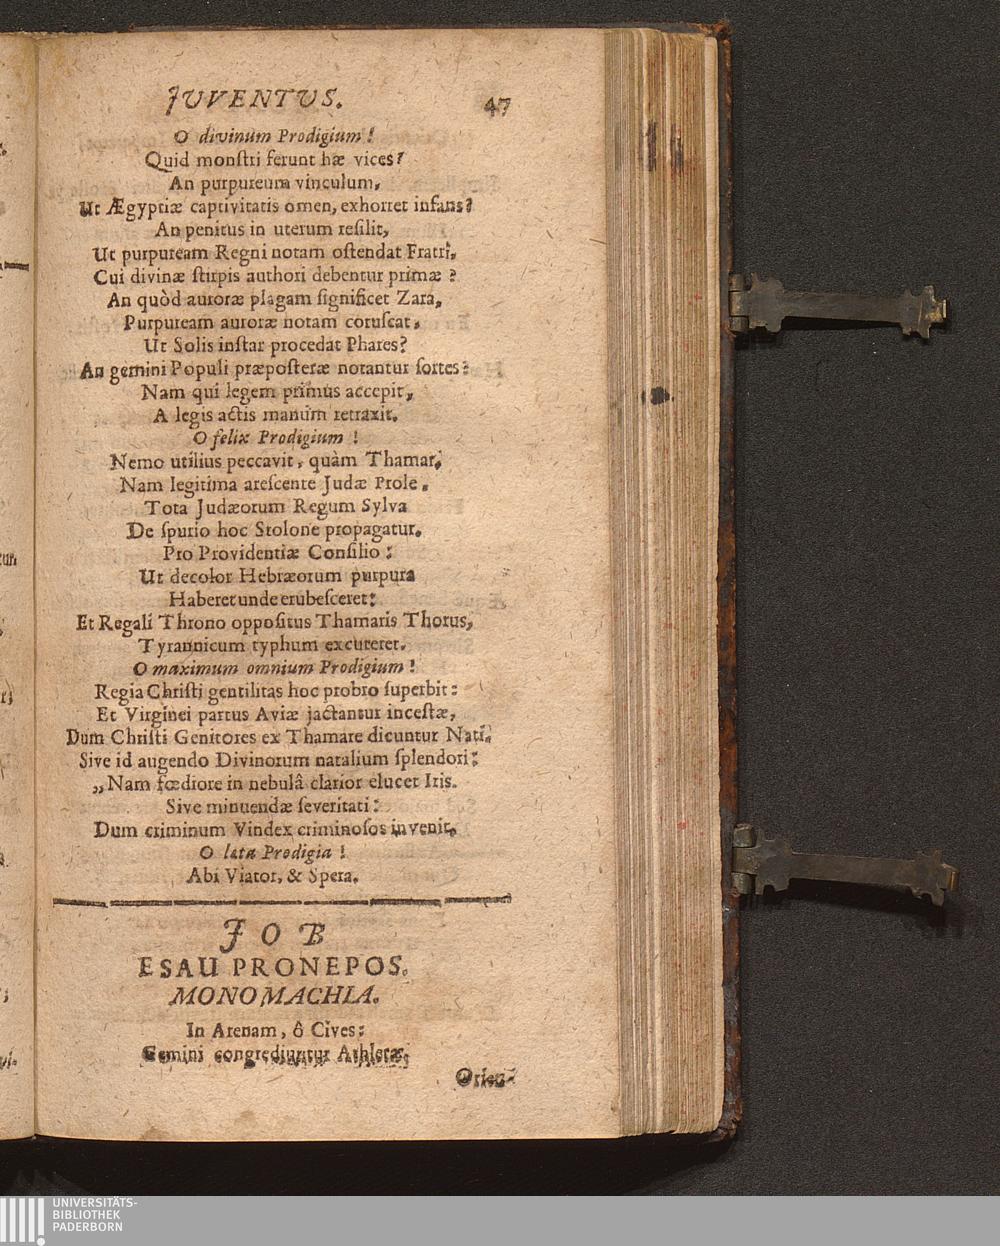 JUVENTUS. 47
O divinum Prodigium!
Quid monſtri ferunt hæ vices?
An purpureum vinculum,
Ut Ægyptiæ captivitatis omen, exhorret infans?
An penitus in uterum reſilit,
Ut purpuream Regni notam oſtendat Fratri,
Cui divinæ ſtirpis authori debentur primæ?
An quòd auroræ plagam ſignificet Zara,
Purpuream auroræ notam coruſcat,
Ut Solis inſtar procedat Phares?
An gemini Populi præpoſteræ notantur ſortes?
Nam qui legem primus accepit,
A legis actis manum retraxit.
O felix Prodigium!
Nemo utilius peccavit, quàm Thamar,
Nam legitima areſcente Judæ Prole,
Tota Judæorum Regum Sylva
De ſpurio hoc Stolone propagatur.
Pro Providentiæ Conſilio:
Ut decolor Hebræorum purpura
Haberet unde erubeſceret:
Et Regali Throno oppoſitus Thamaris Thorus,
Tyrannicum typhum excuteret.
O maximum omnium Prodigium!
Regia Chriſti gentilitas hoc probro ſuperbit:
Et Virginei partus Aviæ jactantur inceſtæ,
Dum Chriſti Genitores ex Thamare dicuntur Nati.
Sive id augendo Divinorum natalium ſplendori:
„Nam fœdiore in nebulâ clarior elucet Iris.
Sive minuendæ ſeveritati:
Dum criminum Vindex criminoſos invenit,
O læta Prodigia!
Abi Viator, & Spera.
JOB
ESAU PRONEPOS.
MONOMACHIA.
In Arenam, ô Cives:
Gemini congrediuntur Athletæ,
Orien-
UNIVERSITÄTS-
BIBLIOTHEK
PADERBORN